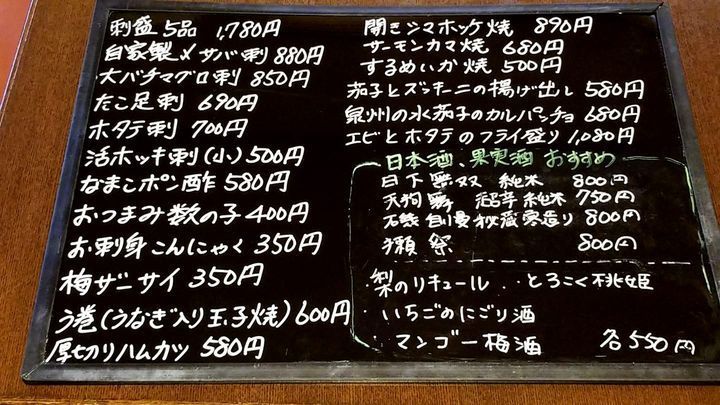 刺盛 5品 1,780円
自家製〆サバ刺 880円
大バチマグロ刺 850円
たこ足刺 690円
ホタテ刺 700円
活ホッキ刺(小)500円
なまこポン酢 580円
おつまみ数の子 400円
お刺身こんにゃく 350円
梅ザーサイ 350円
う巻(うなぎ入り玉子焼)600円
厚切りハムカツ 580円
開きシマホッケ焼 890円
サーモンカマ焼 680円
するめいか焼 500円
茄子とズッキーニの揚げ出し 580円
泉州の水茄子のカルパッチョ 680円
エビとホタテのフライ盛り 1,080円
日本酒、果実酒 おすすめ
日下無双 純米 800円
天狗舞 超辛純米 750円
石鎚 自慢秘蔵実造り 800円
獺祭 800円
梨のリキュール・とろこく桃姫
・いちごのにごり酒
・マンゴー梅酒 各550円